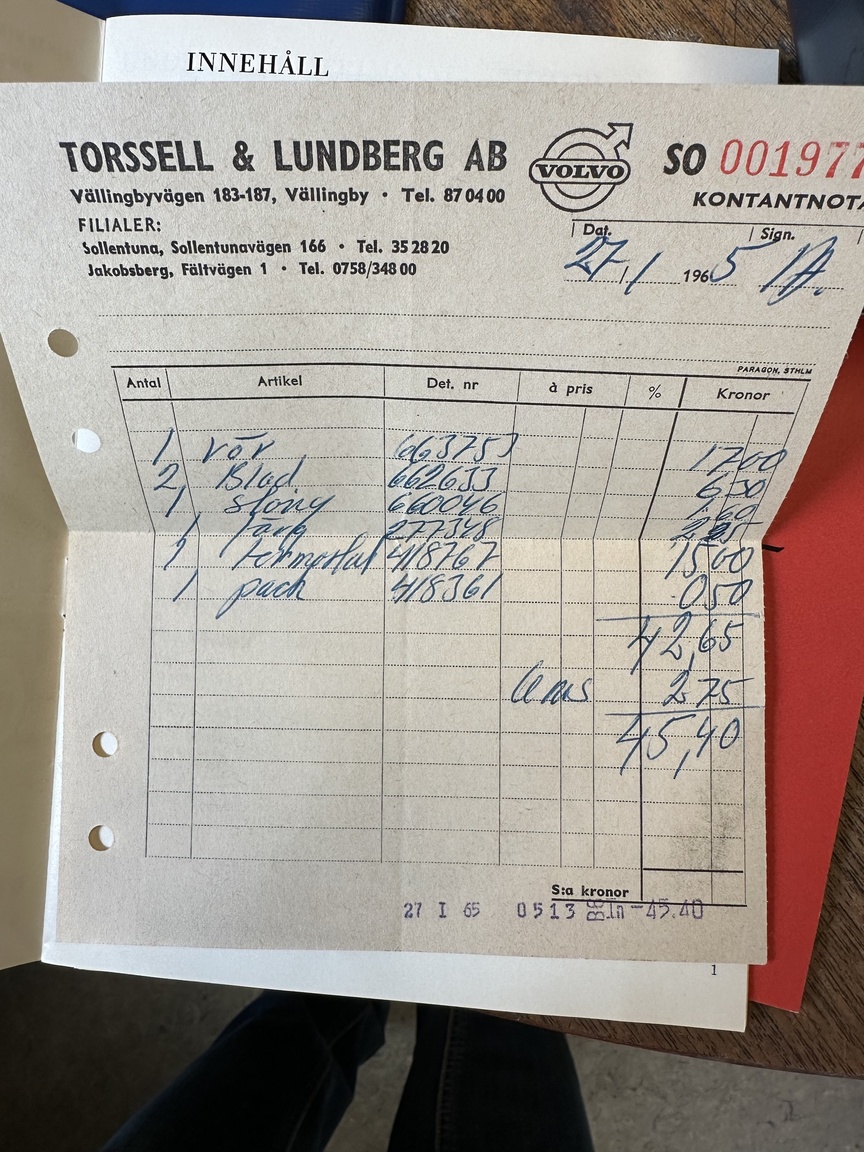 INNEHÅLL
TORSSELL & LUNDBERG AB
Vällingbyvägen 183-187, Vällingby • Tel. 87 04 00
FILIALER:
Sollentuna, Sollentunavägen 166 • Tel. 35 28 20
Jakobsberg, Fältvägen 1 • Tel. 0758/348 00
VOLVO
SO 001977
KONTANTNOTA
Dat. Sign.
27/1 1965
PARAGON, STHLM
Antal Artikel Det. nr à pris % Kronor
1 rör 663753 17 00
2 Blad 662633 6 30
1 slang 660046 1 60
1 färg 277348 2 25
1 termostat 418767 15 00
1 pack 418361 0 50
42,65
Oms 2 75
45,40
S:a kronor
27 I 65 0513 In -45.40
1